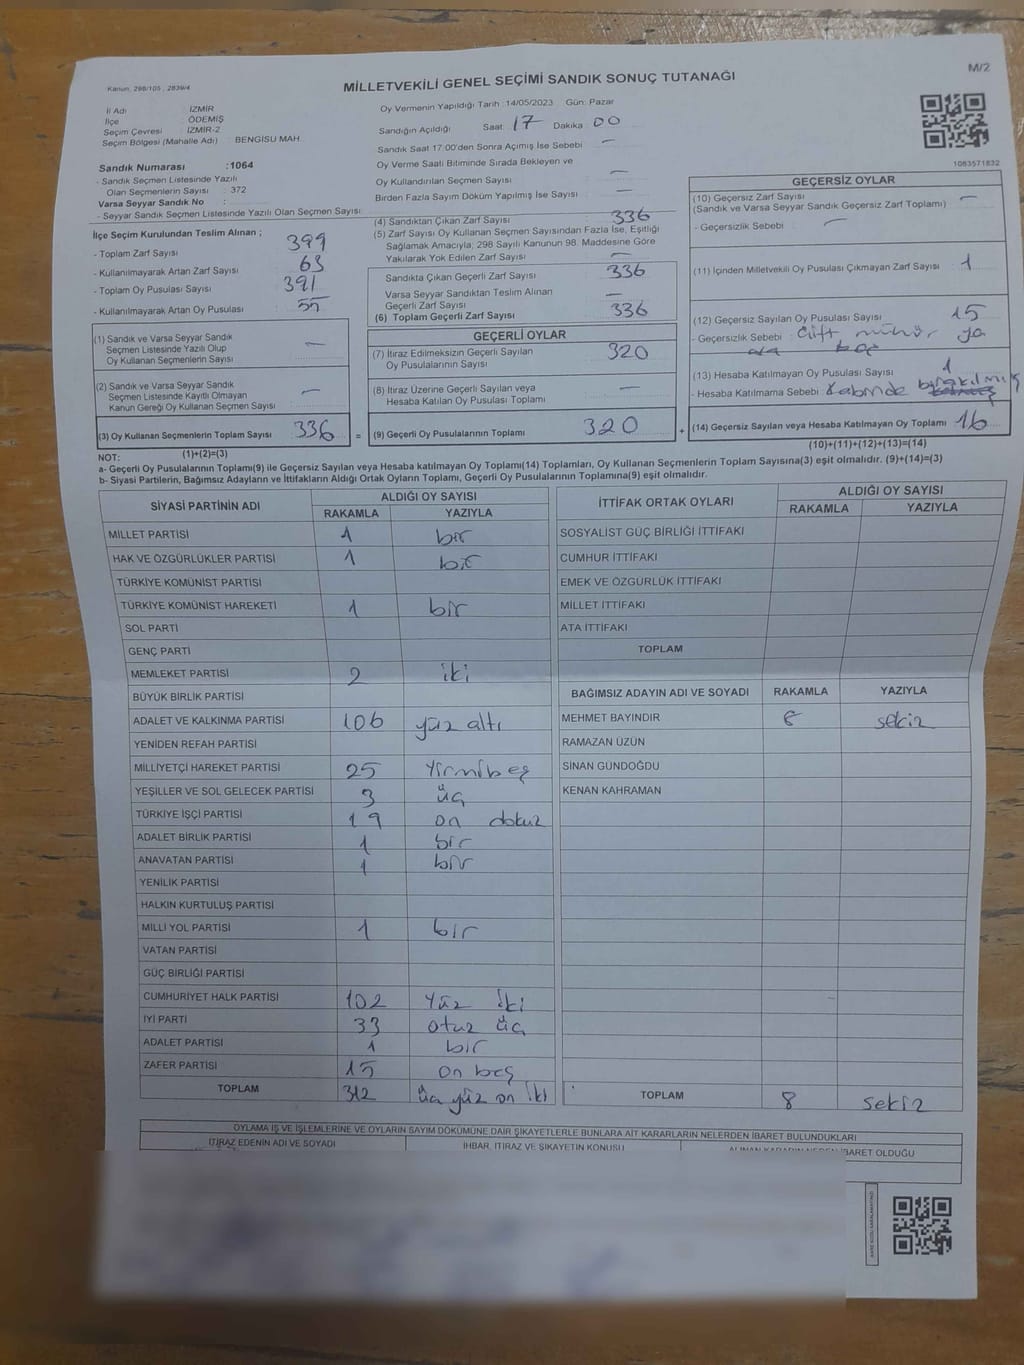 Kanun, 298/105 , 2839/4
MİLLETVEKİLİ GENEL SEÇİMİ SANDIK SONUÇ TUTANAĞI
M/2
İl Adı : İZMİR
İlçe : ÖDEMİŞ
Seçim Çevresi : İZMİR-2
Seçim Bölgesi (Mahalle Adı) : BENGİSU MAH.
Sandık Numarası :1064
- Sandık Seçmen Listesinde Yazılı
Olan Seçmenlerin Sayısı : 372
Varsa Seyyar Sandık No :
- Seyyar Sandık Seçmen Listesinde Yazılı Olan Seçmen Sayısı:
Oy Vermenin Yapıldığı Tarih :14/05/2023 Gün: Pazar
Sandığın Açıldığı Saat: 17 Dakika 00
Sandık Saat 17:00'den Sonra Açımış İse Sebebi —
Oy Verme Saati Bitiminde Sırada Bekleyen ve
Oy Kullandırılan Seçmen Sayısı —
Birden Fazla Sayım Döküm Yapılmış İse Sayısı —
1083571832
İlçe Seçim Kurulundan Teslim Alınan ;
- Toplam Zarf Sayısı 399
- Kullanılmayarak Artan Zarf Sayısı 63
- Toplam Oy Pusulası Sayısı 391
- Kullanılmayarak Artan Oy Pusulası 55
(1) Sandık ve Varsa Seyyar Sandık
Seçmen Listesinde Yazılı Olup
Oy Kullanan Seçmenlerin Sayısı —
(2) Sandık ve Varsa Seyyar Sandık
Seçmen Listesinde Kayıtlı Olmayan
Kanun Gereği Oy Kullanan Seçmen Sayısı —
(3) Oy Kullanan Seçmenlerin Toplam Sayısı 336 =
(1)+(2)=(3)
(4) Sandıktan Çıkan Zarf Sayısı 336
(5) Zarf Sayısı Oy Kullanan Seçmen Sayısından Fazla İse, Eşitliği
Sağlamak Amacıyla; 298 Sayılı Kanunun 98. Maddesine Göre
Yakılarak Yok Edilen Zarf Sayısı —
Sandıkta Çıkan Geçerli Zarf Sayısı 336
Varsa Seyyar Sandıktan Teslim Alınan
Geçerli Zarf Sayısı —
(6) Toplam Geçerli Zarf Sayısı 336
GEÇERLİ OYLAR
(7) İtiraz Edilmeksizin Geçerli Sayılan
Oy Pusulalarının Sayısı 320
(8) İtiraz Üzerine Geçerli Sayılan veya
Hesaba Katılan Oy Pusulası Toplamı —
(9) Geçerli Oy Pusulalarının Toplamı 320 +
GEÇERSİZ OYLAR
(10) Geçersiz Zarf Sayısı —
(Sandık ve Varsa Seyyar Sandık Geçersiz Zarf Toplamı)
- Geçersizlik Sebebi : —
(11) İçinden Milletvekili Oy Pusulası Çıkmayan Zarf Sayısı 1
(12) Geçersiz Sayılan Oy Pusulası Sayısı 15
- Geçersizlik Sebebi : çift mühür ya
da boş
(13) Hesaba Katılmayan Oy Pusulası Sayısı 1
- Hesaba Katılmama Sebebi : kabinde bırakılmış
(14) Geçersiz Sayılan veya Hesaba Katılmayan Oy Toplamı 16
(10)+(11)+(12)+(13)=(14)
NOT:
a- Geçerli Oy Pusulalarının Toplamı(9) ile Geçersiz Sayılan veya Hesaba katılmayan Oy Toplamı(14) Toplamları, Oy Kullanan Seçmenlerin Toplam Sayısına(3) eşit olmalıdır. (9)+(14)=(3)
b- Siyasi Partilerin, Bağımsız Adayların ve İttifakların Aldığı Ortak Oyların Toplamı, Geçerli Oy Pusulalarının Toplamına(9) eşit olmalıdır.
SİYASİ PARTİNİN ADI
ALDIĞI OY SAYISI
RAKAMLA YAZIYLA
MİLLET PARTİSİ 1 bir
HAK VE ÖZGÜRLÜKLER PARTİSİ 1 bir
TÜRKİYE KOMÜNİST PARTİSİ
TÜRKİYE KOMÜNİST HAREKETİ 1 bir
SOL PARTİ
GENÇ PARTİ
MEMLEKET PARTİSİ 2 iki
BÜYÜK BİRLİK PARTİSİ
ADALET VE KALKINMA PARTİSİ 106 yüz altı
YENİDEN REFAH PARTİSİ
MİLLİYETÇİ HAREKET PARTİSİ 25 Yirmibeş
YEŞİLLER VE SOL GELECEK PARTİSİ 3 üç
TÜRKİYE İŞÇİ PARTİSİ 19 on dokuz
ADALET BİRLİK PARTİSİ 1 bir
ANAVATAN PARTİSİ 1 bir
YENİLİK PARTİSİ
HALKIN KURTULUŞ PARTİSİ
MİLLİ YOL PARTİSİ 1 bir
VATAN PARTİSİ
GÜÇ BİRLİĞİ PARTİSİ
CUMHURİYET HALK PARTİSİ 102 Yüz iki
İYİ PARTİ 33 otuz üç
ADALET PARTİSİ 1 bir
ZAFER PARTİSİ 15 on beş
TOPLAM 312 üç yüz on iki
İTTİFAK ORTAK OYLARI
ALDIĞI OY SAYISI
RAKAMLA YAZIYLA
SOSYALİST GÜÇ BİRLİĞİ İTTİFAKI
CUMHUR İTTİFAKI
EMEK VE ÖZGÜRLÜK İTTİFAKI
MİLLET İTTİFAKI
ATA İTTİFAKI
TOPLAM
BAĞIMSIZ ADAYIN ADI VE SOYADI RAKAMLA YAZIYLA
MEHMET BAYINDIR 8 sekiz
RAMAZAN ÜZÜN
SİNAN GÜNDOĞDU
KENAN KAHRAMAN
TOPLAM 8 sekiz
OYLAMA İŞ VE İŞLEMLERİNE VE OYLARIN SAYIM DÖKÜMÜNE DAİR ŞİKAYETLERLE BUNLARA AİT KARARLARIN NELERDEN İBARET BULUNDUKLARI
İTİRAZ EDENİN ADI VE SOYADI
İHBAR, İTİRAZ VE ŞİKAYETİN KONUSU
ALINAN KARARIN NEDEN İBARET OLDUĞU